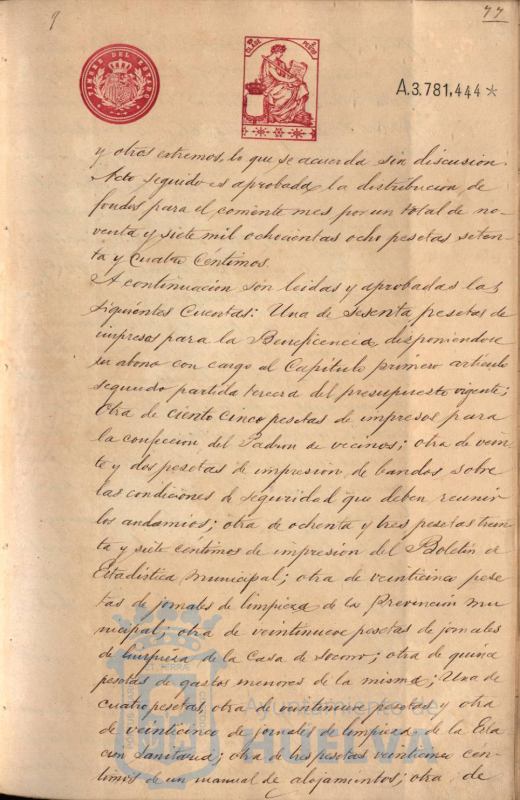 9
77
TIMBRE DEL ESTADO
9ª CLASE
2 PESETAS
A.3.781,444*
y otros estremos, lo que se acuerda sin discusion.
Acto seguido es aprobada la distribucion de
fondos para el corriente mes por un total de no-
venta y siete mil ochocientas ocho pesetas seten-
ta y cuatro céntimos.
A continuacion son leidas y aprobadas las
siguientes cuentas: Una de sesenta pesetas de
impresos para la Beneficencia disponiendose
su abono con cargo al Capítulo primero articulo
segundo partida tercera del presupuesto vigente;
otra de ciento cinco pesetas de impresos para
la confeccion del Padron de vecinos; otra de vein-
te y dos pesetas de impresion de bandos sobre
las condiciones de seguridad que deben reunir
los andamios; otra de ochenta y tres pesetas trein-
ta y siete céntimos de impresion del Boletin de
Estadística Municipal; otra de veinticinco pese-
tas de jornales de limpieza de la Prevención mu-
nicipal; otra de veintinueve pesetas de jornales
de limpieza de la Casa de Socorro; otra de quince
pesetas de gastos menores de la misma; Una de
cuatro pesetas, otra de veintinueve pesetas y otra
de veinticinco de jornales de limpieza de la Esta-
cion Sanitaria; otra de tres pesetas veinticinco cen-
timos de un manual de alojamientos; otra de
Ayuntamiento de
HUELVA